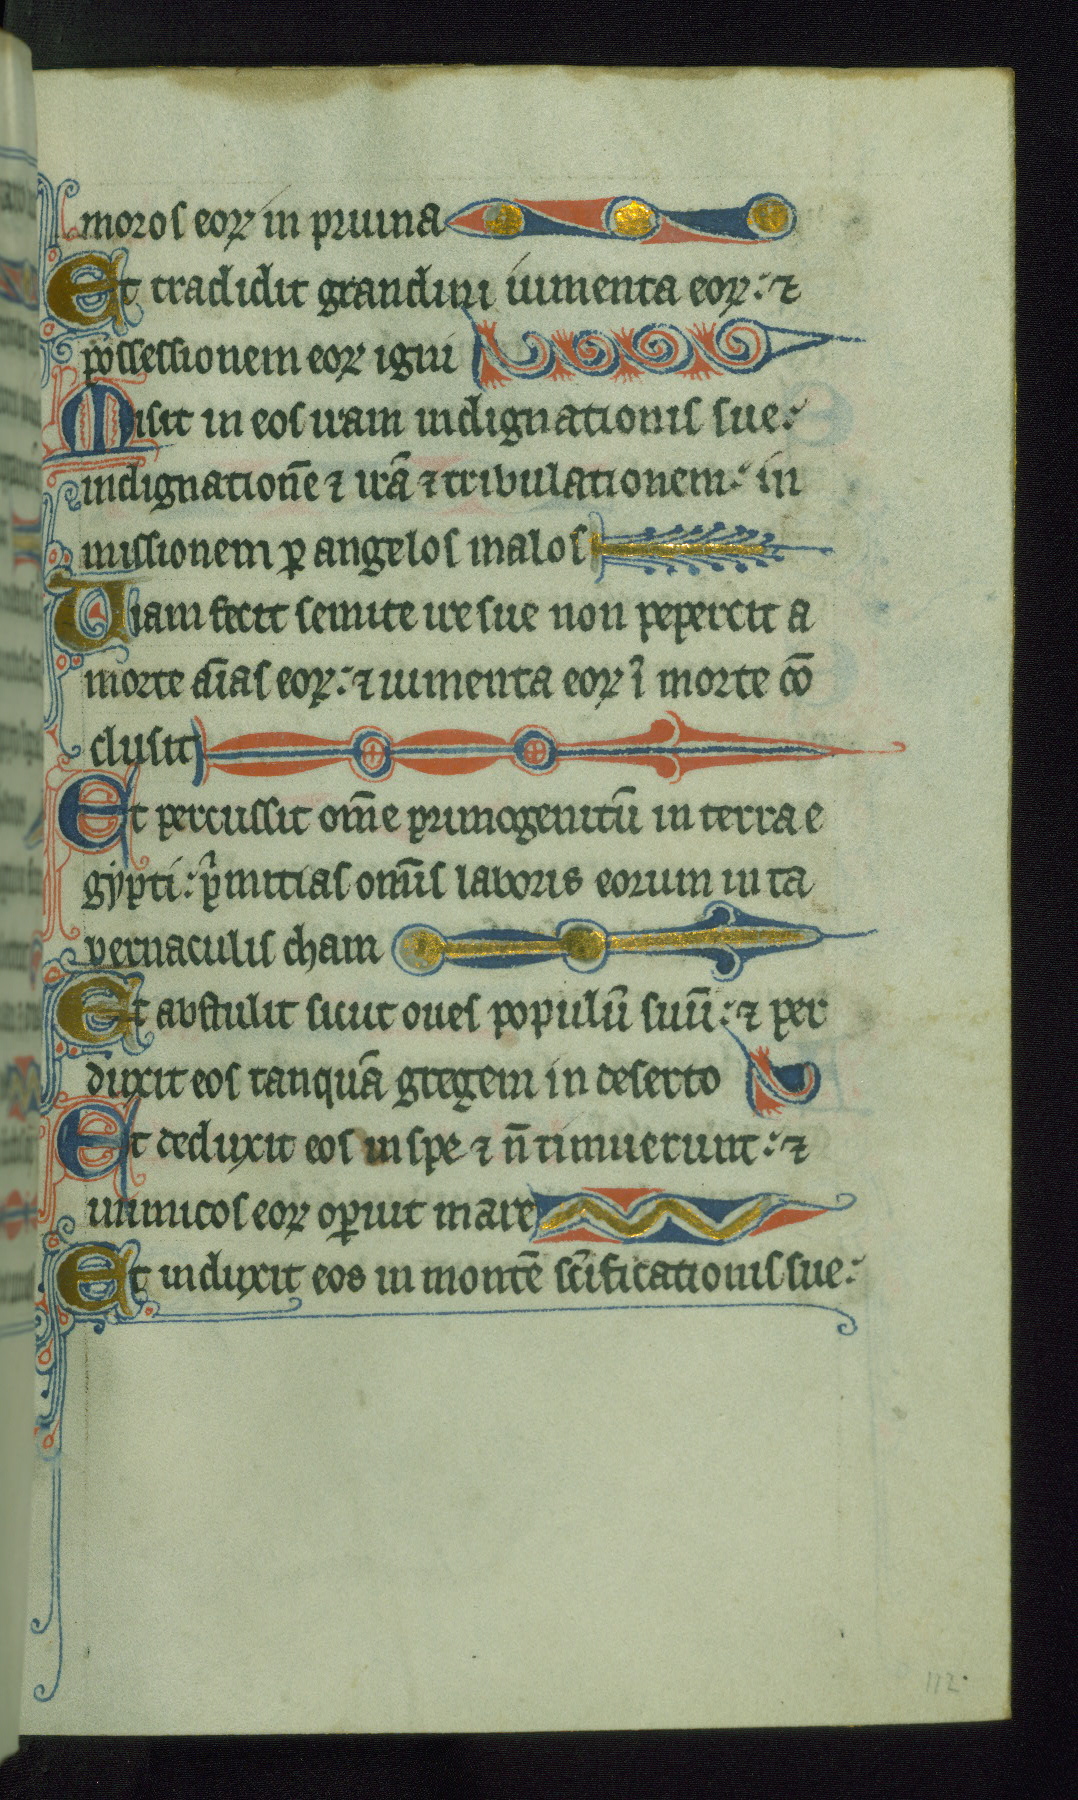 moros eoꝝ in pruina
Et tradidit grandini iumenta eoꝝ: ⁊
possessionem eoꝝ igni
Misit in eos iram indignationis sue:
indignationē ⁊ irā ⁊ tribulationem: in
missionem ꝑ angelos malos
Uiam fecit semite ire sue non pepercit a
morte aīas eoꝝ: ⁊ iumenta eoꝝ ī morte cō
clusit
Et percussit om̄e primogenitū in terra e
gypti: pͥmitias om̄is laboris eorum in ta
bernaculis cham
Et abstulit sicut oues populū suū: ⁊ per
duxit eos tanquā gregem in deserto
Et deduxit eos in spe ⁊ n̄ timuerunt: ⁊
inimicos eoꝝ oꝑuit mare
Et induxit eos in montē sc̄ificationis sue:
112